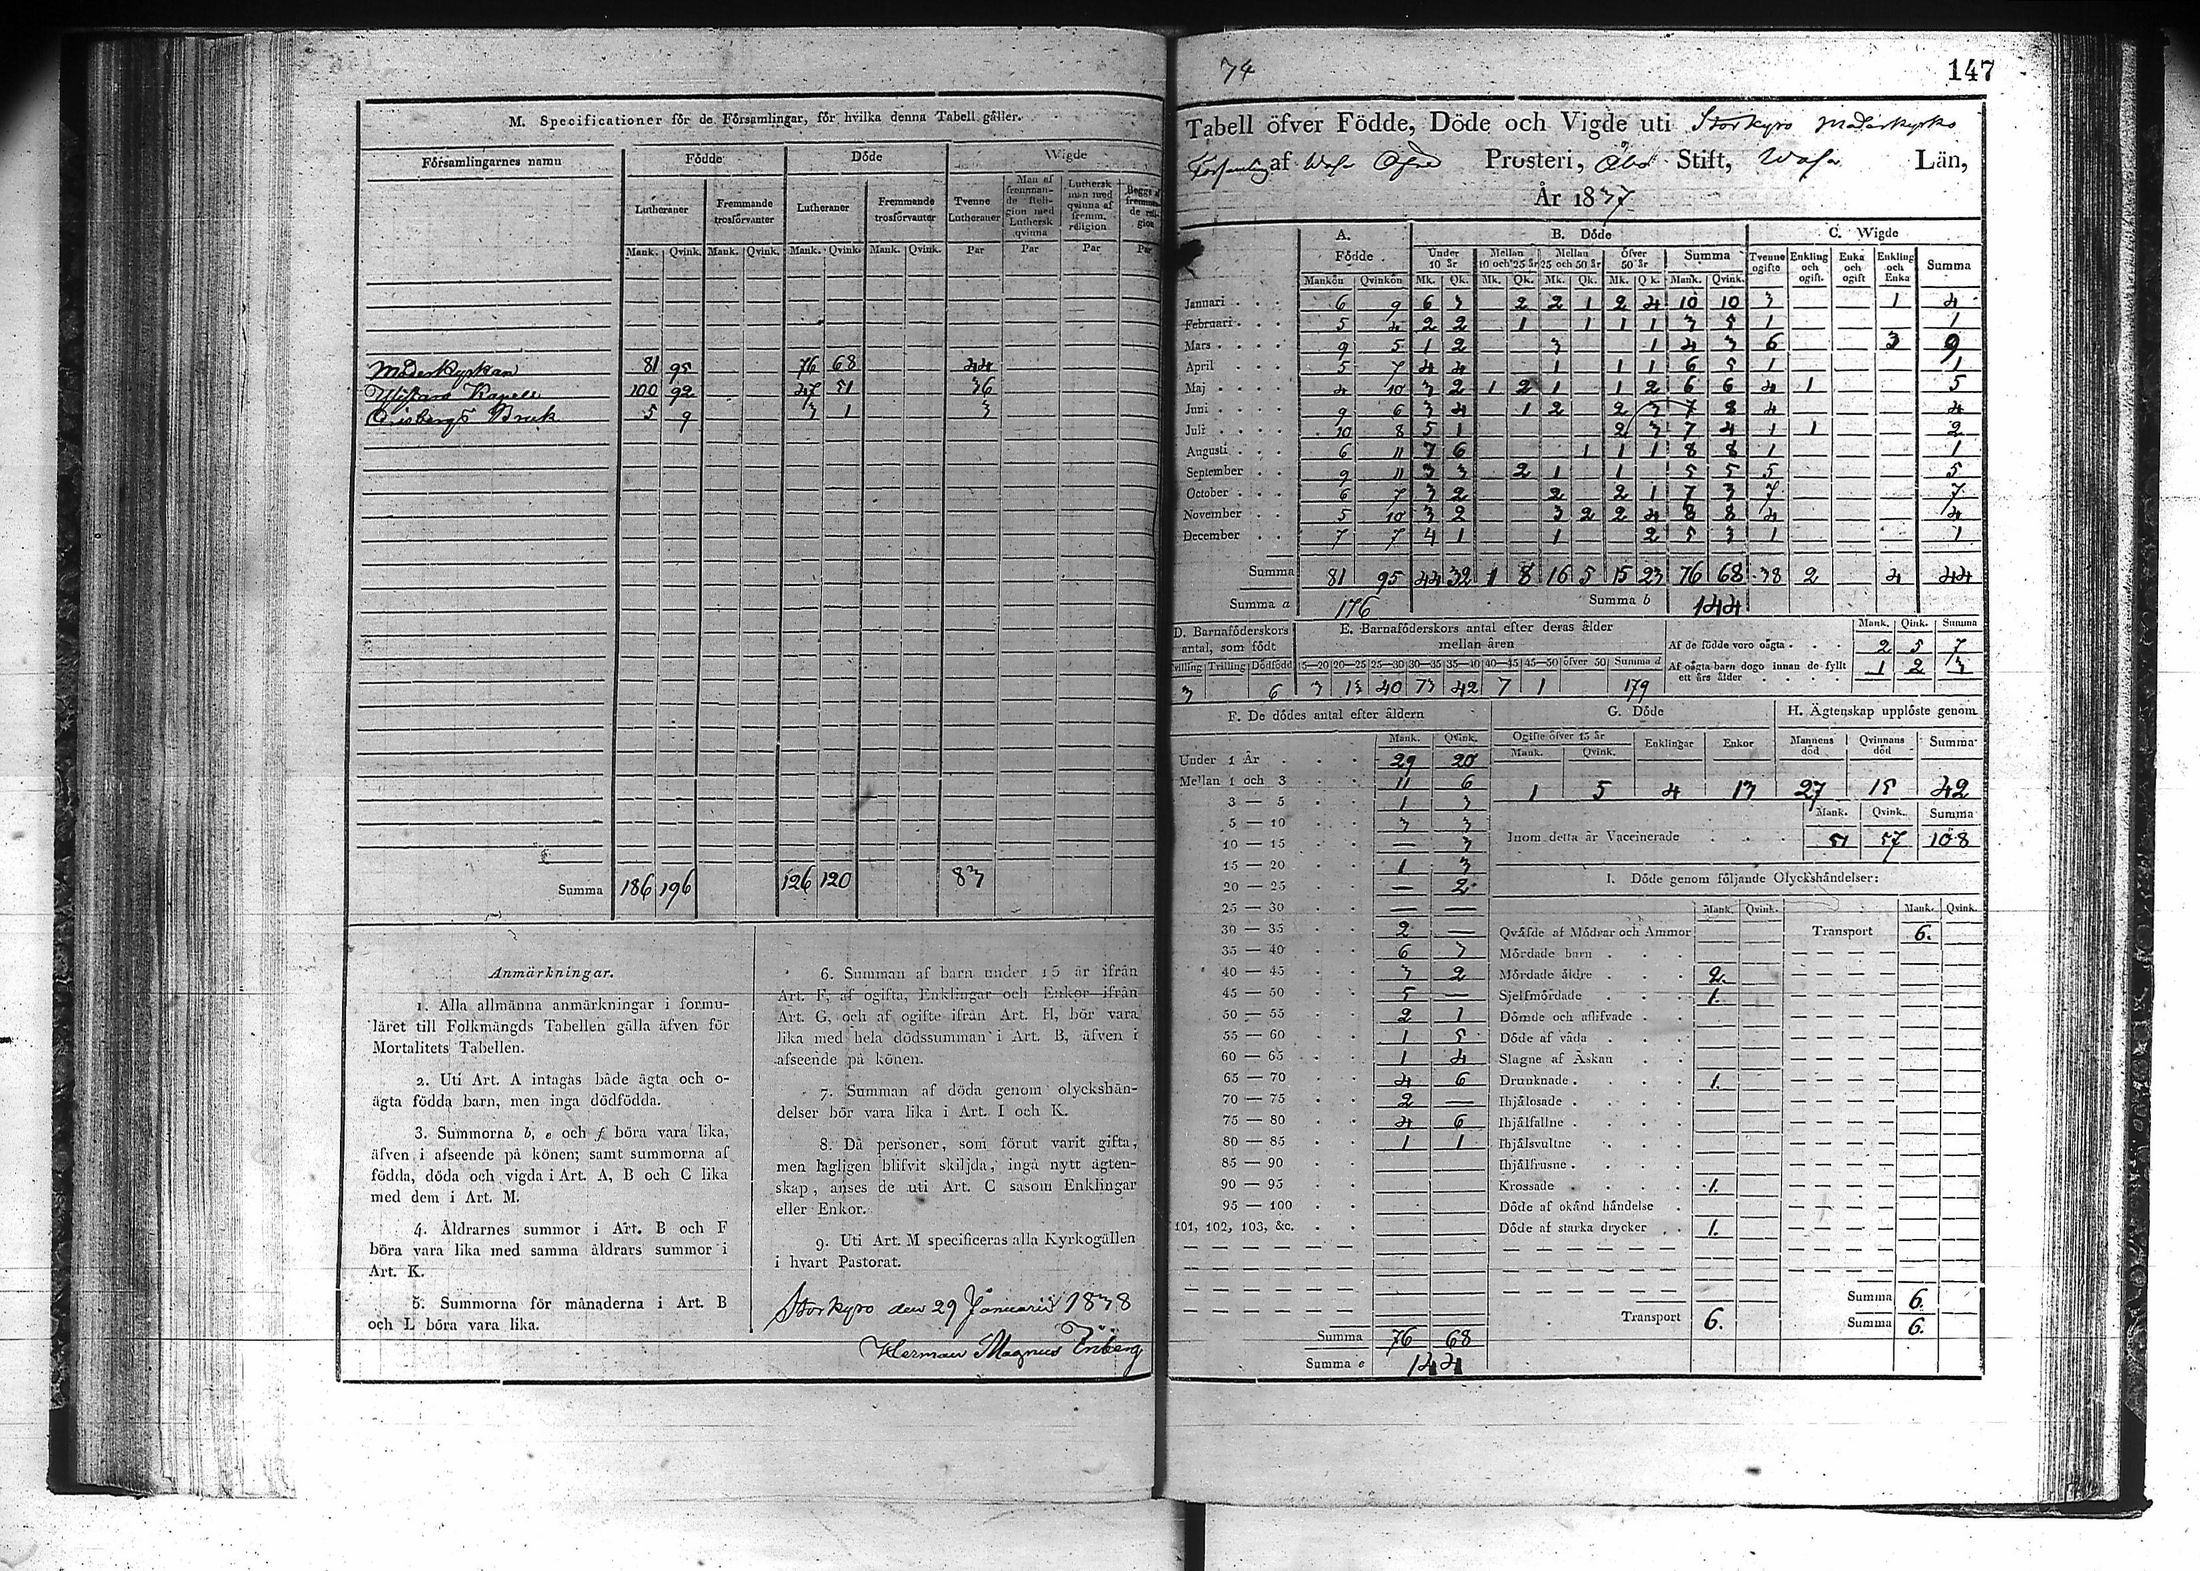 M. Specificationer för de Församlingar, för hvilka denna Tabell gäller.
Församlingarnes namn Födde Döde Wigde
Lutheraner Fremmande trosförvanter Lutheraner Fremmande trosförvanter Tvenne Lutheraner Man af fremmande Religion med Luthersk qvinna Luthersk man med qvinna af fremm. religion Begge af fremmande religion
Mank. Qvink. Mank. Qvink. Mank. Qvink. Mank. Qvink. Par Par Par Par
Moderkyrkan 81 95 76 68 44
Ylistaro Kapell 100 92 47 51 36
Orisbergs Bruk 5 9 3 1 3
Summa 186 196 126 120 83
Anmärkningar.
1. Alla allmänna anmärkningar i formu-
läret till Folkmängds Tabellen gälla äfven för
Mortalitets Tabellen.
2. Uti Art. A intagas både ägta och o-
ägta födda barn, men inga dödfödda.
3. Summorna b, e och f böra vara lika,
äfven i afseende på könen; samt summorna af
födda, döda och vigda i Art. A, B och C lika
med dem i Art. M.
4. Åldrarnes summor i Art. B och F
böra vara lika med samma åldrars summor i
Art. K.
5. Summorna för månaderna i Art. B
och L böra vara lika.
6. Summan af barn under 15 år ifrån
Art. F, af ogifta, Enklingar och Enkor ifrån
Art. G, och af ogifte ifrån Art. H, bör vara
lika med hela dödssumman i Art. B, äfven i
afseende på könen.
7. Summan af döda genom olyckshän-
delser bör vara lika i Art. I och K.
8. Då personer, som förut varit gifta,
men lagligen blifvit skiljda, ingå nytt ägten-
skap, anses de uti Art. C såsom Enklingar
eller Enkor.
9. Uti Art. M specificeras alla Kyrkogällen
i hvart Pastorat.
Storkyro den 29 Januarii 1838
Herman Magnus
74
147
Tabell öfver Födde, Döde och Vigde uti Storkyro Moderkyrko
Församling af Wasa Prosteri, Åbo Stift, Wasa Län,
År 1837.
A. Födde B. Döde C. Wigde
Under 10 år Mellan 10 och 25 år Mellan 25 och 50 år öfver 50 år Summa Tvenne ogifte Enkling och ogift. Enka och ogift Enkling och Enka Summa
Mankön Qvinkön Mk. Qk. Mk. Qk. Mk. Qk. Mk. Qk. Mank. Qvink.
Januari 6 9 6 3 2 2 1 2 4 10 10 3 1 4
Februari 5 4 2 2 1 1 1 1 3 5 1 1
Mars 9 5 1 2 3 1 4 3 6 3 9
April 5 7 4 4 1 1 1 6 5 1 1
Maj 4 10 3 2 1 2 1 1 2 6 6 4 1 5
Juni 9 6 3 4 1 2 2 3 7 8 4 4
Juli 10 8 5 1 2 3 7 4 1 1 2
Augusti 6 11 7 6 1 1 1 8 8 1 1
September 9 11 3 3 2 1 1 5 5 5 5
October 6 7 3 2 2 2 1 7 3 7 7
November 5 10 3 2 3 2 2 4 8 8 4 4
December 7 7 4 1 1 2 5 3 1 1
Summa 81 95 44 32 1 8 16 5 15 23 76 68 38 2 4 44
Summa a 176 Summa b 144
D. Barnaföderskors antal, som födt
Tvilling Trilling Dödfödd
3 6
E. Barnaföderskors antal efter deras ålder
mellan åren
15—20 20—25 25—30 30—35 35—40 40—45 45—50 öfver 50 Summa d
3 13 40 73 42 7 1 179
Mank. Qink. Summa
Af de födde voro oägta 2 5 7
Af oägta barn dogo innan de fyllt
ett års ålder 1 2 3
F. De dödes antal efter åldern
Mank. Qvink.
Under 1 År 29 20
Mellan 1 och 3 11 6
3 — 5 1 3
5 — 10 3 3
10 — 15 — 3
15 — 20 1 3
20 — 25 — 2
25 — 30 — —
30 — 35 2 —
35 — 40 6 3
40 — 45 3 2
45 — 50 5 —
50 — 55 2 1
55 — 60 1 5
60 — 65 1 4
65 — 70 4 6
70 — 75 2 —
75 — 80 4 6
80 — 85 1 1
85 — 90
90 — 95
95 — 100
101, 102, 103, &c.
Summa 76 68
Summa e 144
G. Döde
Ogifte öfver 15 år Enklingar Enkor
Mank. Qvink.
1 5 4 13
H. Ägtenskap upplöste genom
Mannens död Qvinnans död Summa
27 15 42
Mank. Qvink. Summa
Inom detta år Vaccinerade 51 57 108
I. Döde genom följande Olyckshändelser:
Mank. Qvink. Mank. Qvink.
Qväfde af Mödrar och Ammor Transport 6.
Mördade barn
Mördade äldre 2.
Sjelfmördade 1.
Dömde och aflifvade
Döde af våda
Slagne af Åskan
Drunknade 1.
Ihjälosade
Ihjälfallne
Ihjälsvultne
Ihjälfrusne
Krossade 1.
Döde af okänd händelse
Döde af starka drycker 1.
Summa 6.
Transport 6. Summa 6.